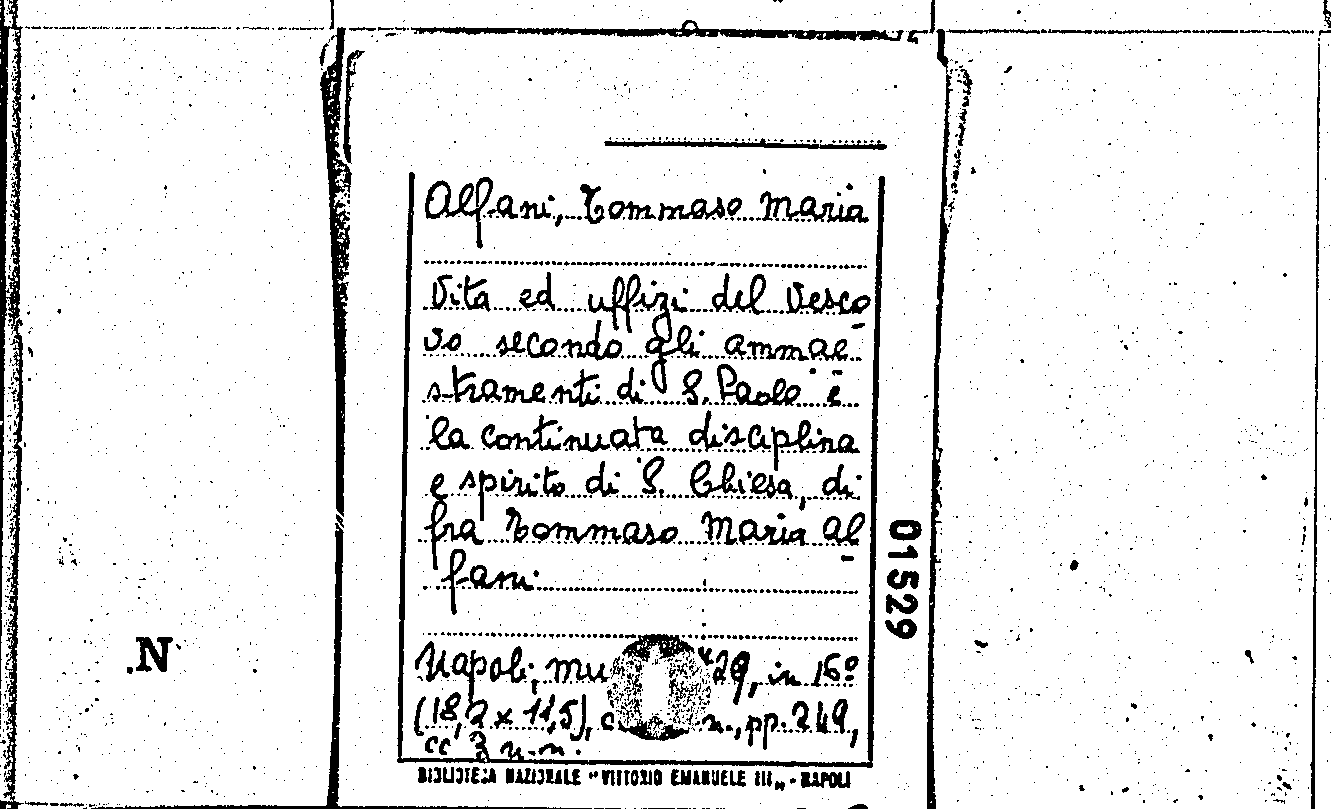 Alfani, Tommaso Maria
Vita ed uffizi del Vesco-
vo secondo gli ammae-
stramenti di S. Paolo e
la continuata disciplina
e spirito di S. Chiesa, di
fra Tommaso Maria Al-
fani.
Napoli, 29, in 16º
(18,2 x 11,5), n., pp. 249,
cc 3 n.n.
BIBLIOTECA NAZIONALE "VITTORIO EMANUELE III" - NAPOLI
01529
.N